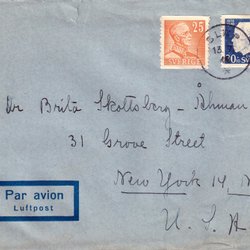 25
SVERIGE
Dr Brita Skottsberg-Åhman
31 Grove Street
New York 14, N
U. S. A
Par avion
Luftpost